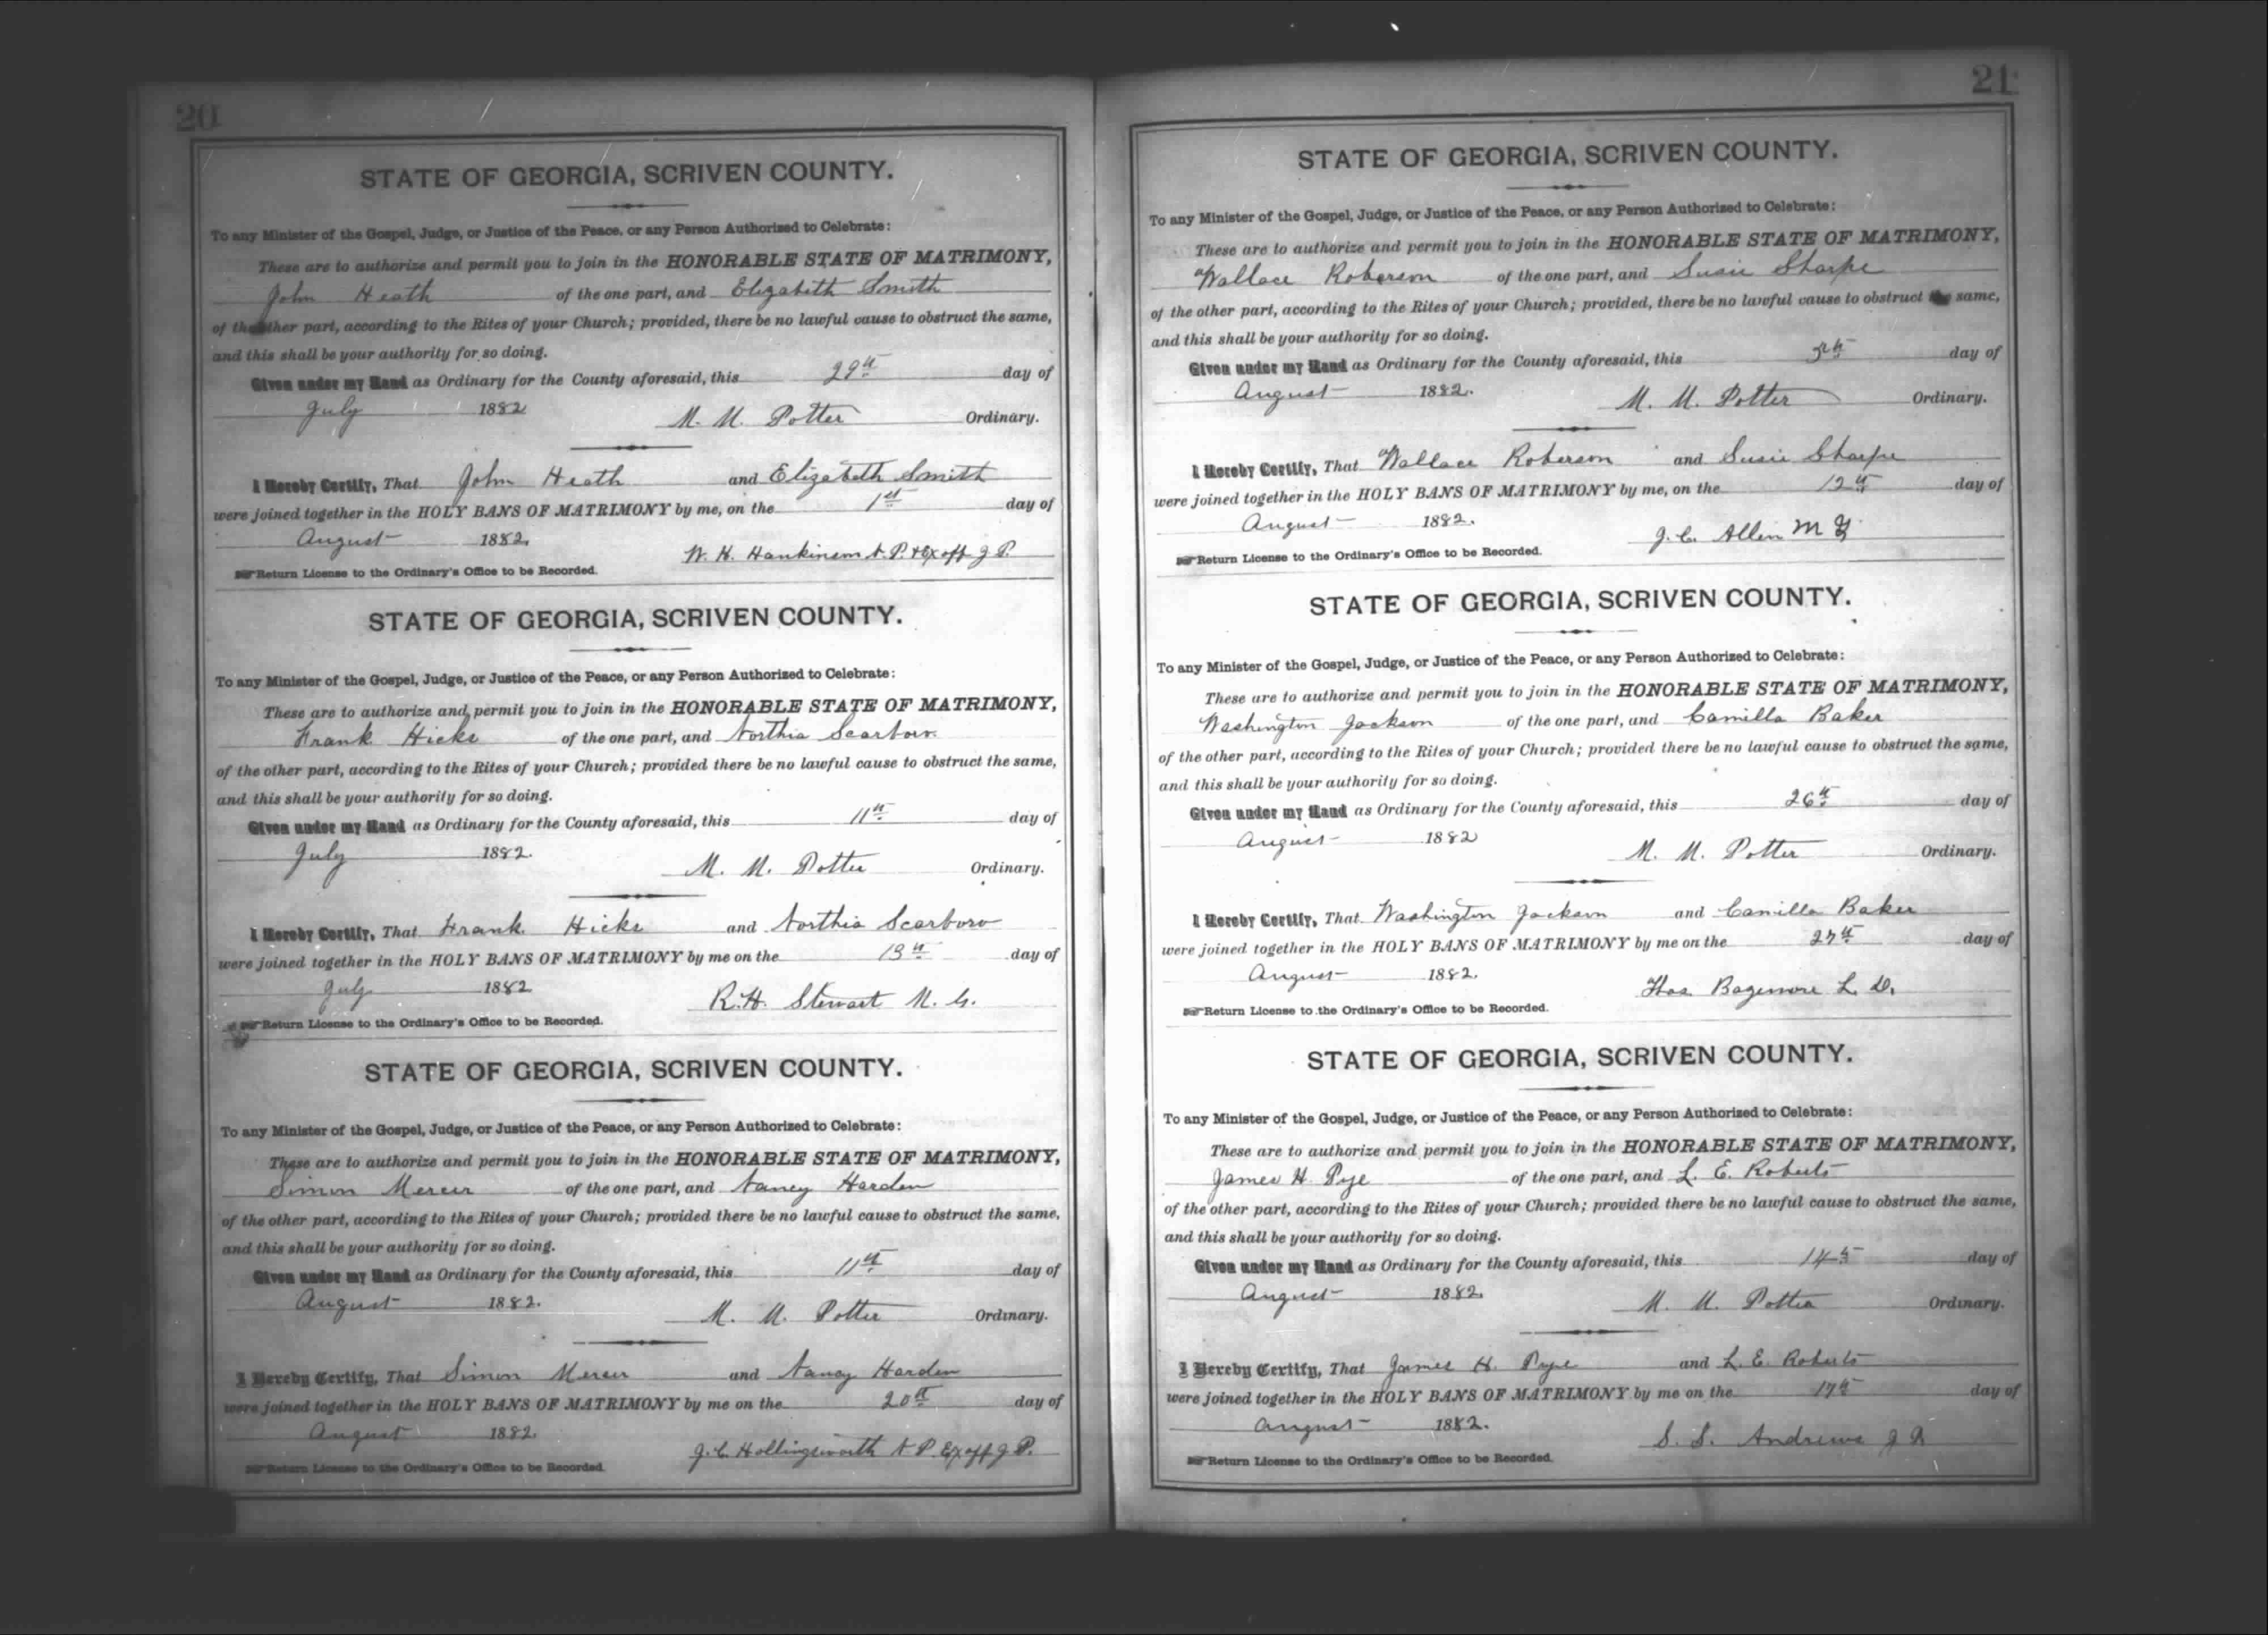 20
STATE OF GEORGIA, SCRIVEN COUNTY.
To any Minister of the Gospel, Judge, or Justice of the Peace, or any Person Authorized to Celebrate:
These are to authorize and permit you to join in the HONORABLE STATE OF MATRIMONY,
John Heath of the one part, and Elizabeth Smith
of the other part, according to the Rites of your Church; provided, there be no lawful cause to obstruct the same,
and this shall be your authority for so doing.
Given under my Hand as Ordinary for the County aforesaid, this 29th day of
July 1882 M. M. Potter Ordinary.
I Hereby Certify, That John Heath and Elizabeth Smith
were joined together in the HOLY BANS OF MATRIMONY by me, on the 1st day of
August 1882. W. H. Hankinson N. P. & Ex off J. P.
Return License to the Ordinary's Office to be Recorded.
STATE OF GEORGIA, SCRIVEN COUNTY.
To any Minister of the Gospel, Judge, or Justice of the Peace, or any Person Authorized to Celebrate:
These are to authorize and permit you to join in the HONORABLE STATE OF MATRIMONY,
Frank Hicks of the one part, and Northia Scarboro
of the other part, according to the Rites of your Church; provided there be no lawful cause to obstruct the same,
and this shall be your authority for so doing.
Given under my Hand as Ordinary for the County aforesaid, this 11th day of
July 1882. M. M. Potter Ordinary.
I Hereby Certify, That Frank Hicks and Northia Scarboro
were joined together in the HOLY BANS OF MATRIMONY by me on the 13th day of
July 1882 R. H. Stewart M. G.
Return License to the Ordinary's Office to be Recorded.
STATE OF GEORGIA, SCRIVEN COUNTY.
To any Minister of the Gospel, Judge, or Justice of the Peace, or any Person Authorized to Celebrate:
These are to authorize and permit you to join in the HONORABLE STATE OF MATRIMONY,
Simon Mercer of the one part, and Nancy Harden
of the other part, according to the Rites of your Church; provided there be no lawful cause to obstruct the same,
and this shall be your authority for so doing.
Given under my Hand as Ordinary for the County aforesaid, this 11th day of
August 1882. M. M. Potter Ordinary.
I Hereby Certify, That Simon Mercer and Nancy Harden
were joined together in the HOLY BANS OF MATRIMONY by me on the 20th day of
August 1882. J. C. Hollingsworth N. P. Ex off J. P.
Return License to the Ordinary's Office to be Recorded.
21
STATE OF GEORGIA, SCRIVEN COUNTY.
To any Minister of the Gospel, Judge, or Justice of the Peace, or any Person Authorized to Celebrate:
These are to authorize and permit you to join in the HONORABLE STATE OF MATRIMONY,
Wallace Roberson of the one part, and Susie Sharpe
of the other part, according to the Rites of your Church; provided, there be no lawful cause to obstruct the same,
and this shall be your authority for so doing.
Given under my Hand as Ordinary for the County aforesaid, this day of
August 1882. M. M. Potter Ordinary.
I Hereby Certify, That Wallace Roberson and Susie Sharpe
were joined together in the HOLY BANS OF MATRIMONY by me, on the 12th day of
August 1882. J. C. Allen M G
Return License to the Ordinary's Office to be Recorded.
STATE OF GEORGIA, SCRIVEN COUNTY.
To any Minister of the Gospel, Judge, or Justice of the Peace, or any Person Authorized to Celebrate:
These are to authorize and permit you to join in the HONORABLE STATE OF MATRIMONY,
Washington Jackson of the one part, and Camilla Baker
of the other part, according to the Rites of your Church; provided there be no lawful cause to obstruct the same,
and this shall be your authority for so doing.
Given under my Hand as Ordinary for the County aforesaid, this 26th day of
August 1882 M. M. Potter Ordinary.
I Hereby Certify, That Washington Jackson and Camilla Baker
were joined together in the HOLY BANS OF MATRIMONY by me on the 27th day of
August 1882. Thos Bazemore L. D.
Return License to the Ordinary's Office to be Recorded.
STATE OF GEORGIA, SCRIVEN COUNTY.
To any Minister of the Gospel, Judge, or Justice of the Peace, or any Person Authorized to Celebrate:
These are to authorize and permit you to join in the HONORABLE STATE OF MATRIMONY,
James H. Pye of the one part, and L. E. Roberts
of the other part, according to the Rites of your Church; provided there be no lawful cause to obstruct the same,
and this shall be your authority for so doing.
Given under my Hand as Ordinary for the County aforesaid, this 14th day of
August 1882. M. M. Potter Ordinary.
I Hereby Certify, That James H. Pye and L. E. Roberts
were joined together in the HOLY BANS OF MATRIMONY by me on the 17th day of
August 1882. S. S. Andrews J P
Return License to the Ordinary's Office to be Recorded.